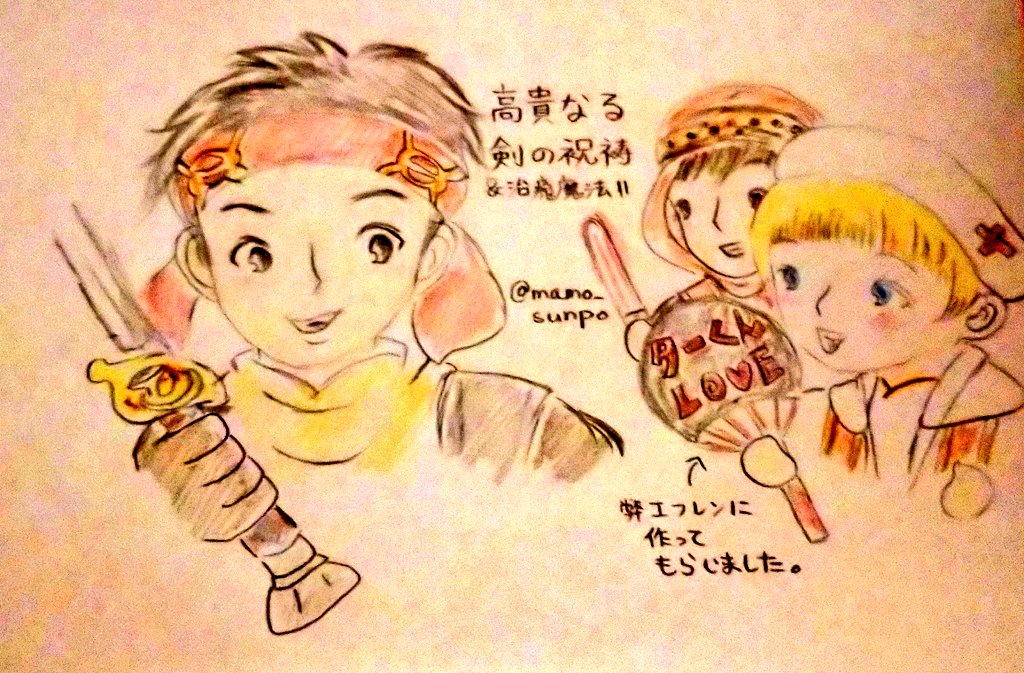 高貴なる
剣の祝祷
&治癒魔法II
@mamo_
sunpo
ターくん
LOVE
弊エフレンに
作って
もらいました。